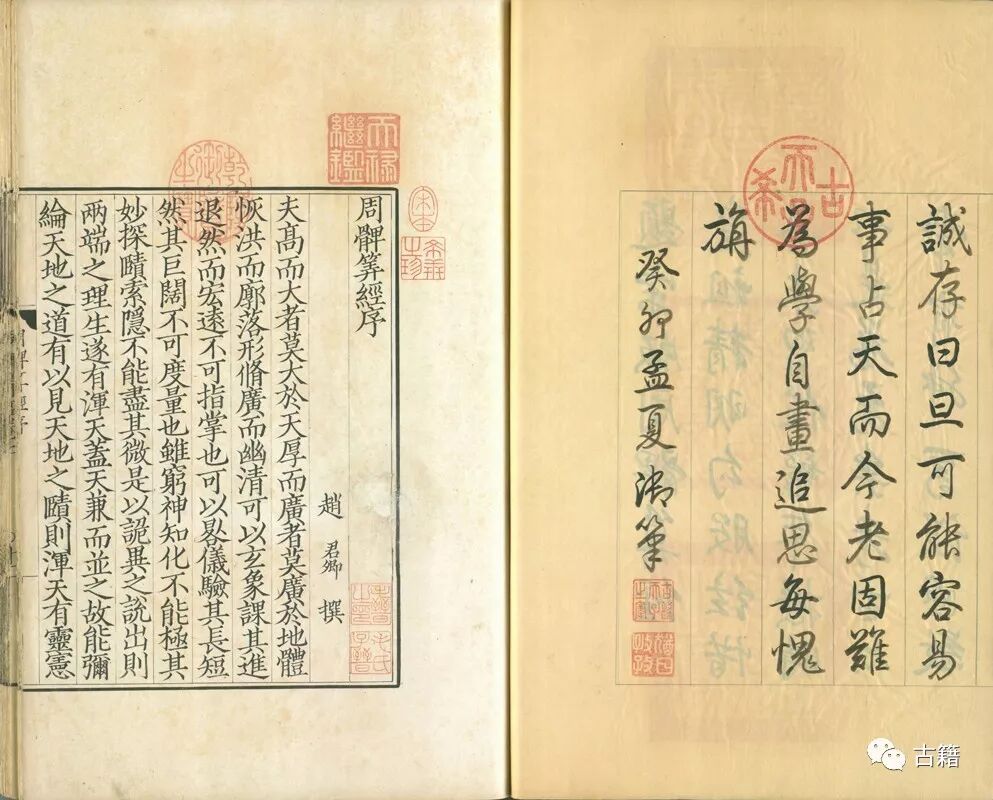 誠存曰旦可能容易
事占天而今老固難
為學自畫追思每愧
旃
癸卯孟夏御筆
古希天子
天祿繼鑑
乾隆御覽之寶
宋本
希世之珍
周髀筭經序
趙君卿撰
夫高而大者莫大於天厚而廣者莫廣於地體
恢洪而廓落形脩廣而幽清可以玄象課其進
退然而宏遠不可指掌也可以晷儀驗其長短
然其巨闊不可度量也雖窮神知化不能極其
妙探賾索隱不能盡其微是以詭異之說出則
兩端之理生遂有渾天蓋天兼而並之故能彌
綸天地之道有以見天地之賾則渾天有靈憲
古籍